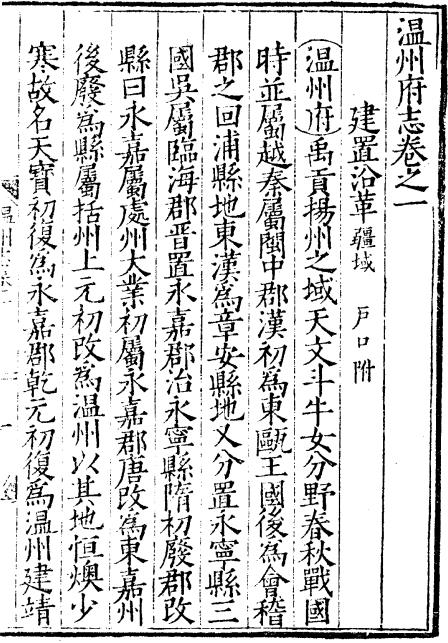 温州府志卷之一
建置沿革 疆域 戶口附
温州府禹貢揚州之域天文斗牛女分野春秋戰國
時並屬越秦屬閩中郡漢初為東甌王國後為會稽
郡之回浦縣地東漢為章安縣地又分置永寧縣三
國吳屬臨海郡晋置永嘉郡治永寧縣隋初廢郡改
縣曰永嘉屬處州大業初屬永嘉郡唐改為東嘉州
後廢為縣屬括州上元初改為温州以其地恒燠少
寒故名天寶初復為永嘉郡乾元初復為温州建靖